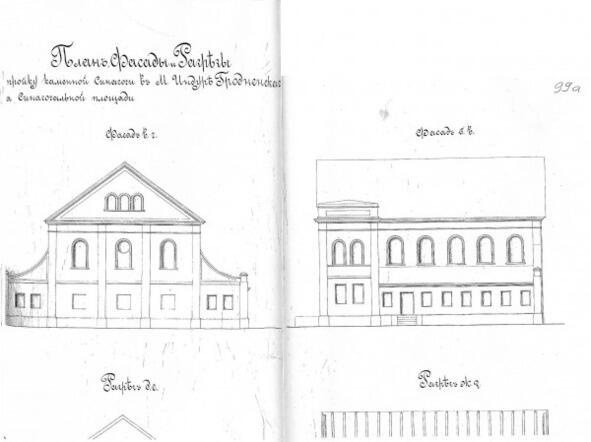 Планъ, Фасады и Разрѣзы
пройку каменной Синагоги въ М. Индурѣ Гродненскаг
а Синагогальной площади
99а
Фасадъ в. г.
Фасадъ
Разрѣзъ д. е.
Разрѣзъ ж